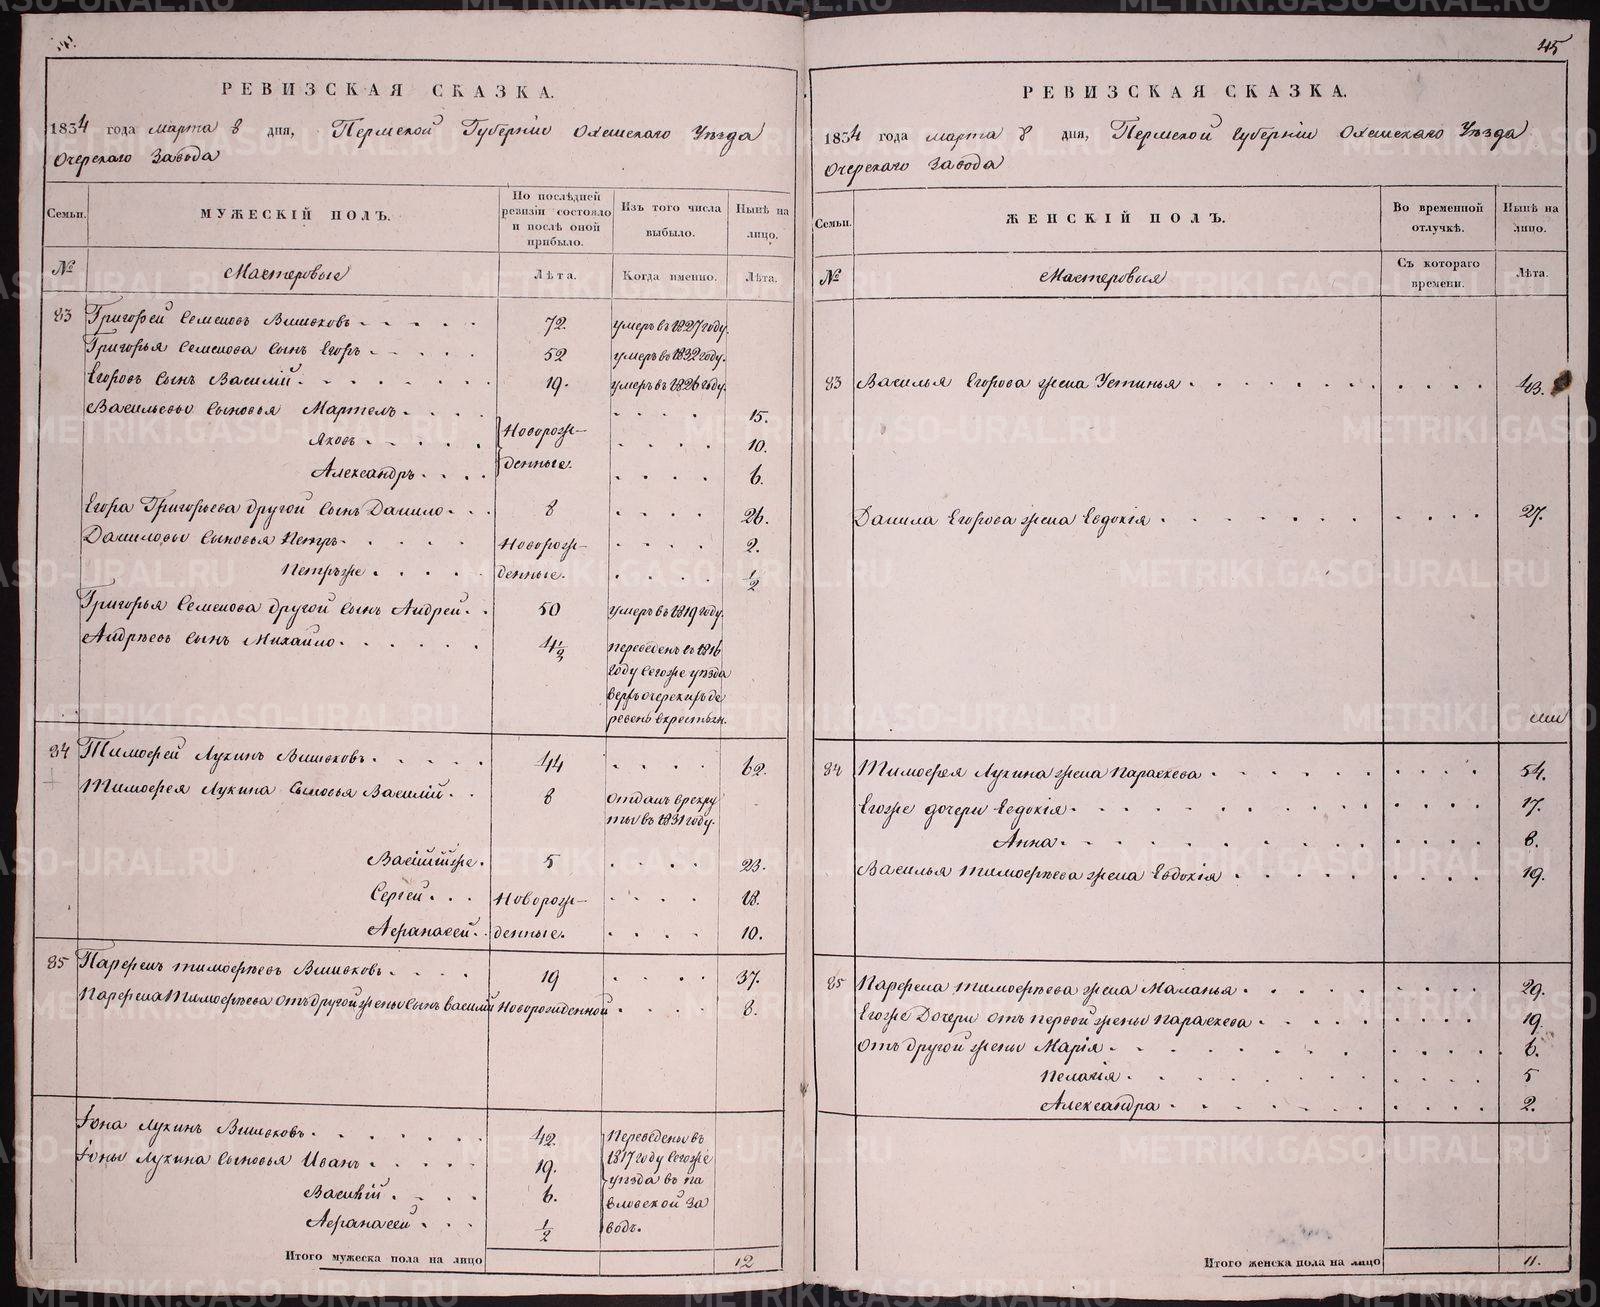 РЕВИЗСКАЯ СКАЗКА.
1834 года марта 8 дня, Пермской Губерніи Оханскаго Уѣзда
Очерскаго Завода
Семьи.
МУЖЕСКІЙ ПОЛЪ.
По послѣдней ревизіи состояло и послѣ оной прибыло.
Изъ того числа выбыло.
Нынѣ на лицо.
№ Мастеровые Лѣта. Когда именно. Лѣта.
83 Григорей Семеновъ 72. умеръ въ 1827 году.
Григорья Семенова сынъ Егоръ 52 умеръ въ 1832 году.
Егоровъ сынъ Василій 19. умеръ въ 1826 году.
Васильевы сыновья Мартемъ 15.
Яковъ Новорож- 10.
Александръ денные. 6.
Егора Григорьева другой сынъ Данило 8 26.
Даниловы сыновья Петръ Новорож- 2.
Петръже денные. 1/2
Григорья Семенова другой сынъ Андрей 50 умеръ въ 1819 году.
Андрѣевъ сынъ Михайло переведенъ въ 1816
году сегоже уѣзда
84 Тимофей Лукинъ 44 62.
Тимофея Лукина сыновья Василій 8 отданъ в рекру
ты въ 1831 году.
Василійже 5 23.
Сергей Новорож- 18.
Афанасей денные. 10.
85 Парфенъ Тимофѣевъ 19 37.
Парфена Тимофѣева отъ другой жены сынъ Василій Новорожденной 8.
Іона Лукинъ 42. Переведены въ
Іоны Лукина сыновья Иванъ 19. 1817 году сегоже
Василій 6. уѣзда въ Па
вловской за
Афанасей 1/2 водъ.
Итого мужеска пола на лицо 12
45
РЕВИЗСКАЯ СКАЗКА.
1834 года марта 8 дня, Пермской Губерніи Оханскаго Уѣзда
Очерскаго Завода
Семьи.
ЖЕНСКІЙ ПОЛЪ.
Во временной отлучкѣ.
Нынѣ на лицо.
№ Мастеровыя Съ котораго времени. Лѣта.
83 Василья Егорова жена Устинья 43.
Данила Егорова жена Евдокія 27.
84 Тимофея Лукина жена Параскева 54.
Егоже дочери Евдокія 17.
Анна 8.
Василья Тимофѣева жена Евдокія 19.
85 Парфена Тимофѣева жена Маланья 29.
Егоже дочери отъ первой жены Параскева 19
отъ другой жены Марія 6.
Пелагія 5
Александра 2.
Итого женска пола на лицо 11.
METRIKI.GASO-URAL.RU